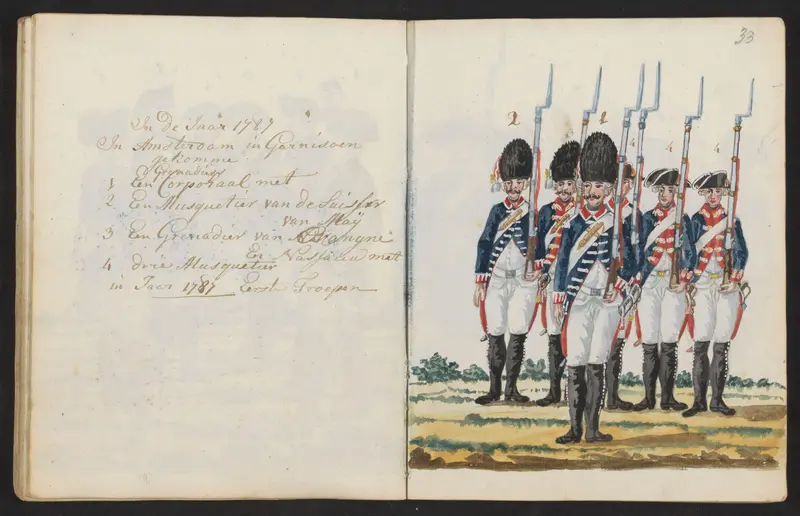 In De Jaar 1787
In Amsterdam in Garnisoen
gekomme
Grenadier
1 Een Corporaal met
2 Een Musquetier van de Switser
van Maÿ
3 Een Grenadier van
En Nassau met
4 drie Musquetier
in Jaar 1787 Eerste Troepen
33
2 1
4 4 4